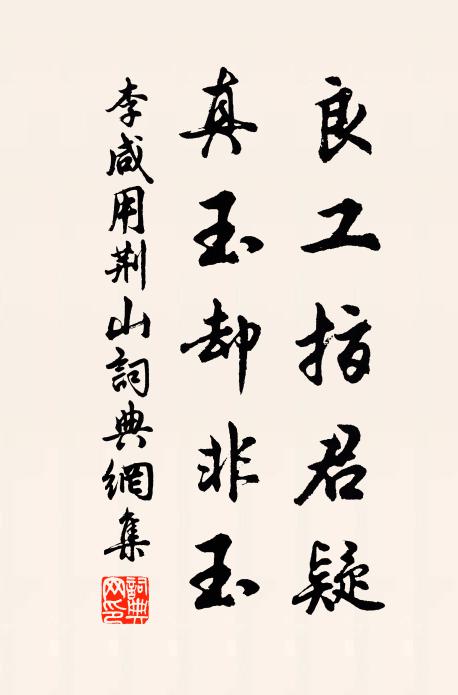 良工指君疑
真玉却非玉
李咸用荆山詞典網集
詞典
网印